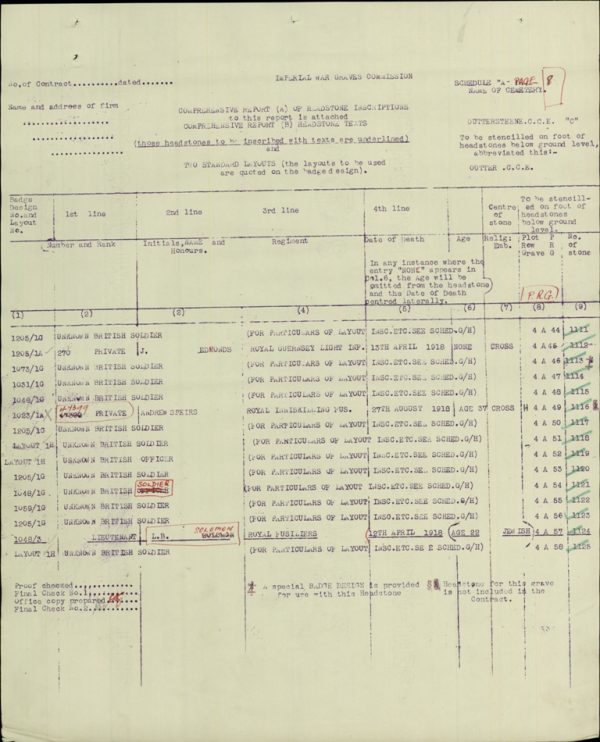 IMPERIAL WAR GRAVES COMMISSION
No. of Contract...........dated.......
SCHEDULE "A" PAGE 8
NAME OF CEMETERY.
Name and address of firm
COMPREHENSIVE REPORT (A) OF HEADSTONE INSCRIPTIONS
to this report is attached
COMPREHENSIVE REPORT (B) HEADSTONE TEXTS
OUTTERSTEENE.C.C.E. "C"
(those headstones to be inscribed with texts are underlined)
and
To be stencilled on foot of
headstones below ground level,
abbreviated thus:-
TWO STANDARD LAYOUTS (the layouts to be used
are quoted on the badge design).
OUTTER .C.C.E.
Badge Design No. and Layout No.
1st line
2nd line
3rd line
4th line
Centre of stone
To be stencilled on foot of headstones below ground level.
Number and Rank
Initials, NAME and Honours.
Regiment
Date of Death
Age
Relig: Emb.
Plot Row Grave
P R G
No. of stone
In any instance where the
entry "NONE" appears in
Col.6, the Age will be
omitted from the headstone
and the Date of Death
centred laterally.
(P.R.G.)
(1) (2) (3) (4) (5) (6) (7) (8) (9)
1205/1G UNKNOWN BRITISH SOLDIER (FOR PARTICULARS OF LAYOUT INSC.ETC.SEE SCHED.G/H) 4 A 44 1111
1208/1A 270 PRIVATE J. EDMONDS ROYAL GUERNSEY LIGHT INF. 13TH APRIL 1918 NONE CROSS 4 A 45 1112
1073/1G UNKNOWN BRITISH SOLDIER (FOR PARTICULARS OF LAYOUT INSC.ETC.SEE SCHED.G/H) 4 A 46 1113
1031/1G UNKNOWN BRITISH SOLDIER (FOR PARTICULARS OF LAYOUT INSC.ETC.SEE SCHED.G/H) 4 A 47 1114
1046/1G UNKNOWN BRITISH SOLDIER (FOR PARTICULARS OF LAYOUT INSC.ETC.SEE SCHED.G/H) 4 A 48 1115
1023/1A PRIVATE ANDREW SPEIRS ROYAL INNISKILLING FUS. 27TH AUGUST 1918 AGE 37 CROSS 4 A 49 1116
1205/1G UNKNOWN BRITISH SOLDIER (FOR PARTICULARS OF LAYOUT INSC.ETC.SEE SCHED.G/H) 4 A 50 1117
LAYOUT 1H UNKNOWN BRITISH SOLDIER (FOR PARTICULARS OF LAYOUT INSC.ETC.SEE SCHED.G/H) 4 A 51 1118
LAYOUT 1H UNKNOWN BRITISH OFFICER (FOR PARTICULARS OF LAYOUT INSC.ETC.SEE SCHED.G/H) 4 A 52 1119
1205/1G UNKNOWN BRITISH SOLDIER (FOR PARTICULARS OF LAYOUT INSC.ETC.SEE SCHED.G/H) 4 A 53 1120
1048/1G UNKNOWN BRITISH SOLDIER (FOR PARTICULARS OF LAYOUT INSC.ETC.SEE SCHED.G/H) 4 A 54 1121
1059/1G UNKNOWN BRITISH SOLDIER (FOR PARTICULARS OF LAYOUT INSC.ETC.SEE SCHED.G/H) 4 A 55 1122
1205/1G UNKNOWN BRITISH SOLDIER (FOR PARTICULARS OF LAYOUT INSC.ETC.SEE SCHED.G/H) 4 A 56 1123
1048/3 LIEUTENANT L.B. SOLOMON ROYAL FUSILIERS 12TH APRIL 1918 AGE 22 JEWISH 4 A 57 1124
LAYOUT 1H UNKNOWN BRITISH SOLDIER (FOR PARTICULARS OF LAYOUT INSC.ETC.SEE SCHED.G/H) 4 A 58 1125
Proof checked..............
Final Check No.1...........
Office copy prepared.......
Final Check No.2...........
A special BADGE DESIGN is provided
for use with this Headstone
Headstone for this grave
is not included in the
Contract.